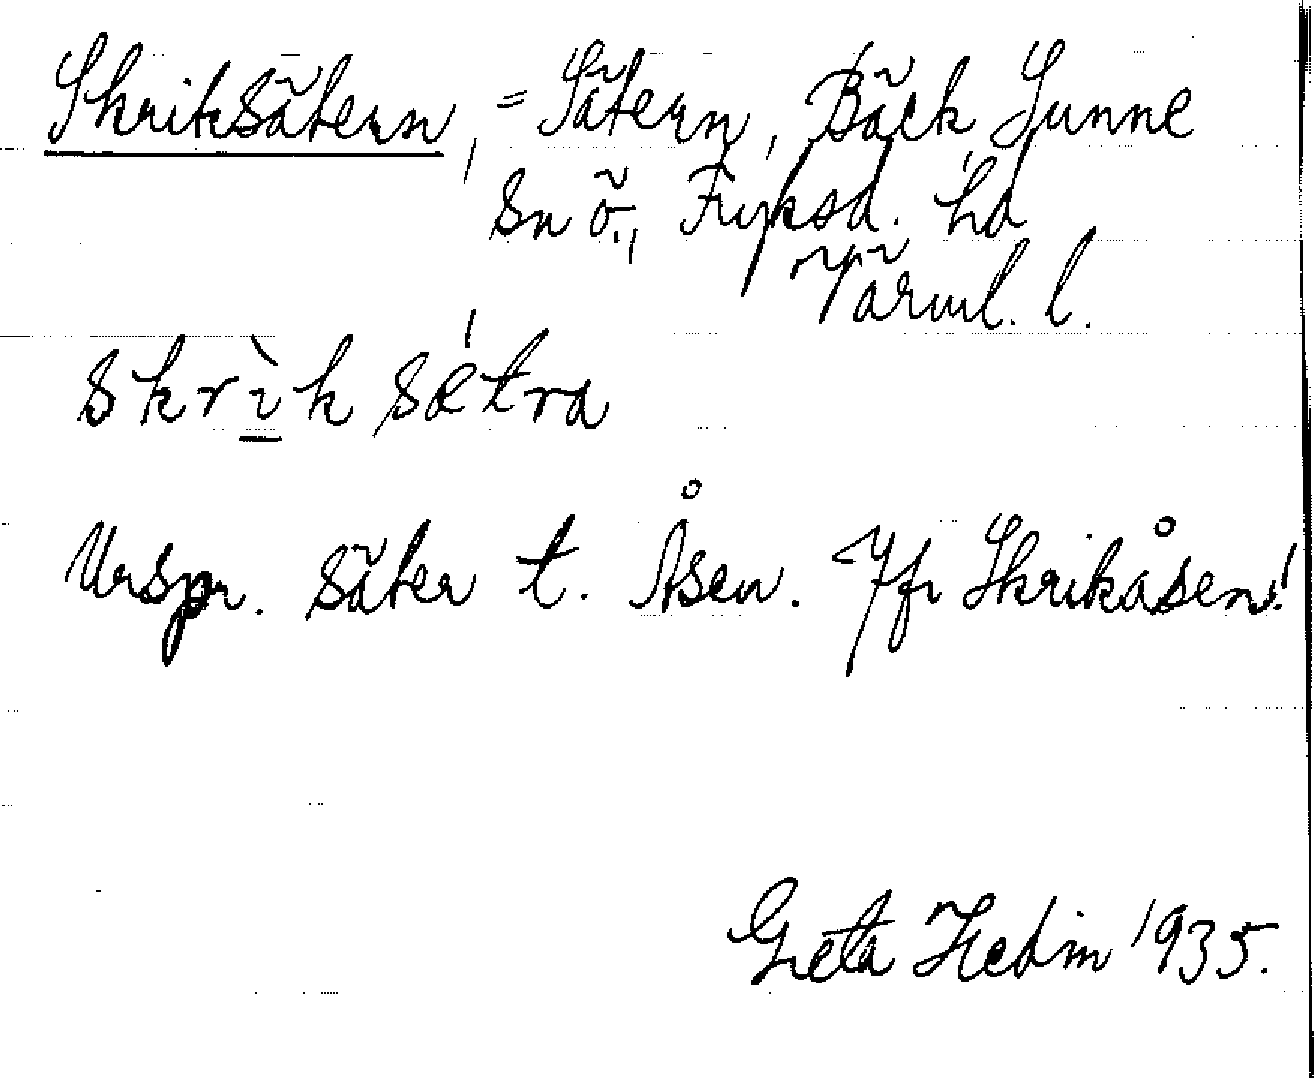 Skriksätern, = Sätern, Bäck, Sunne
Sn ö., Fryksd. hd
Värml. l.
skrìksǽtra
Urspr. säter t. Åsen. Jfr Skrikåsen!
Greta Hedin 1935.